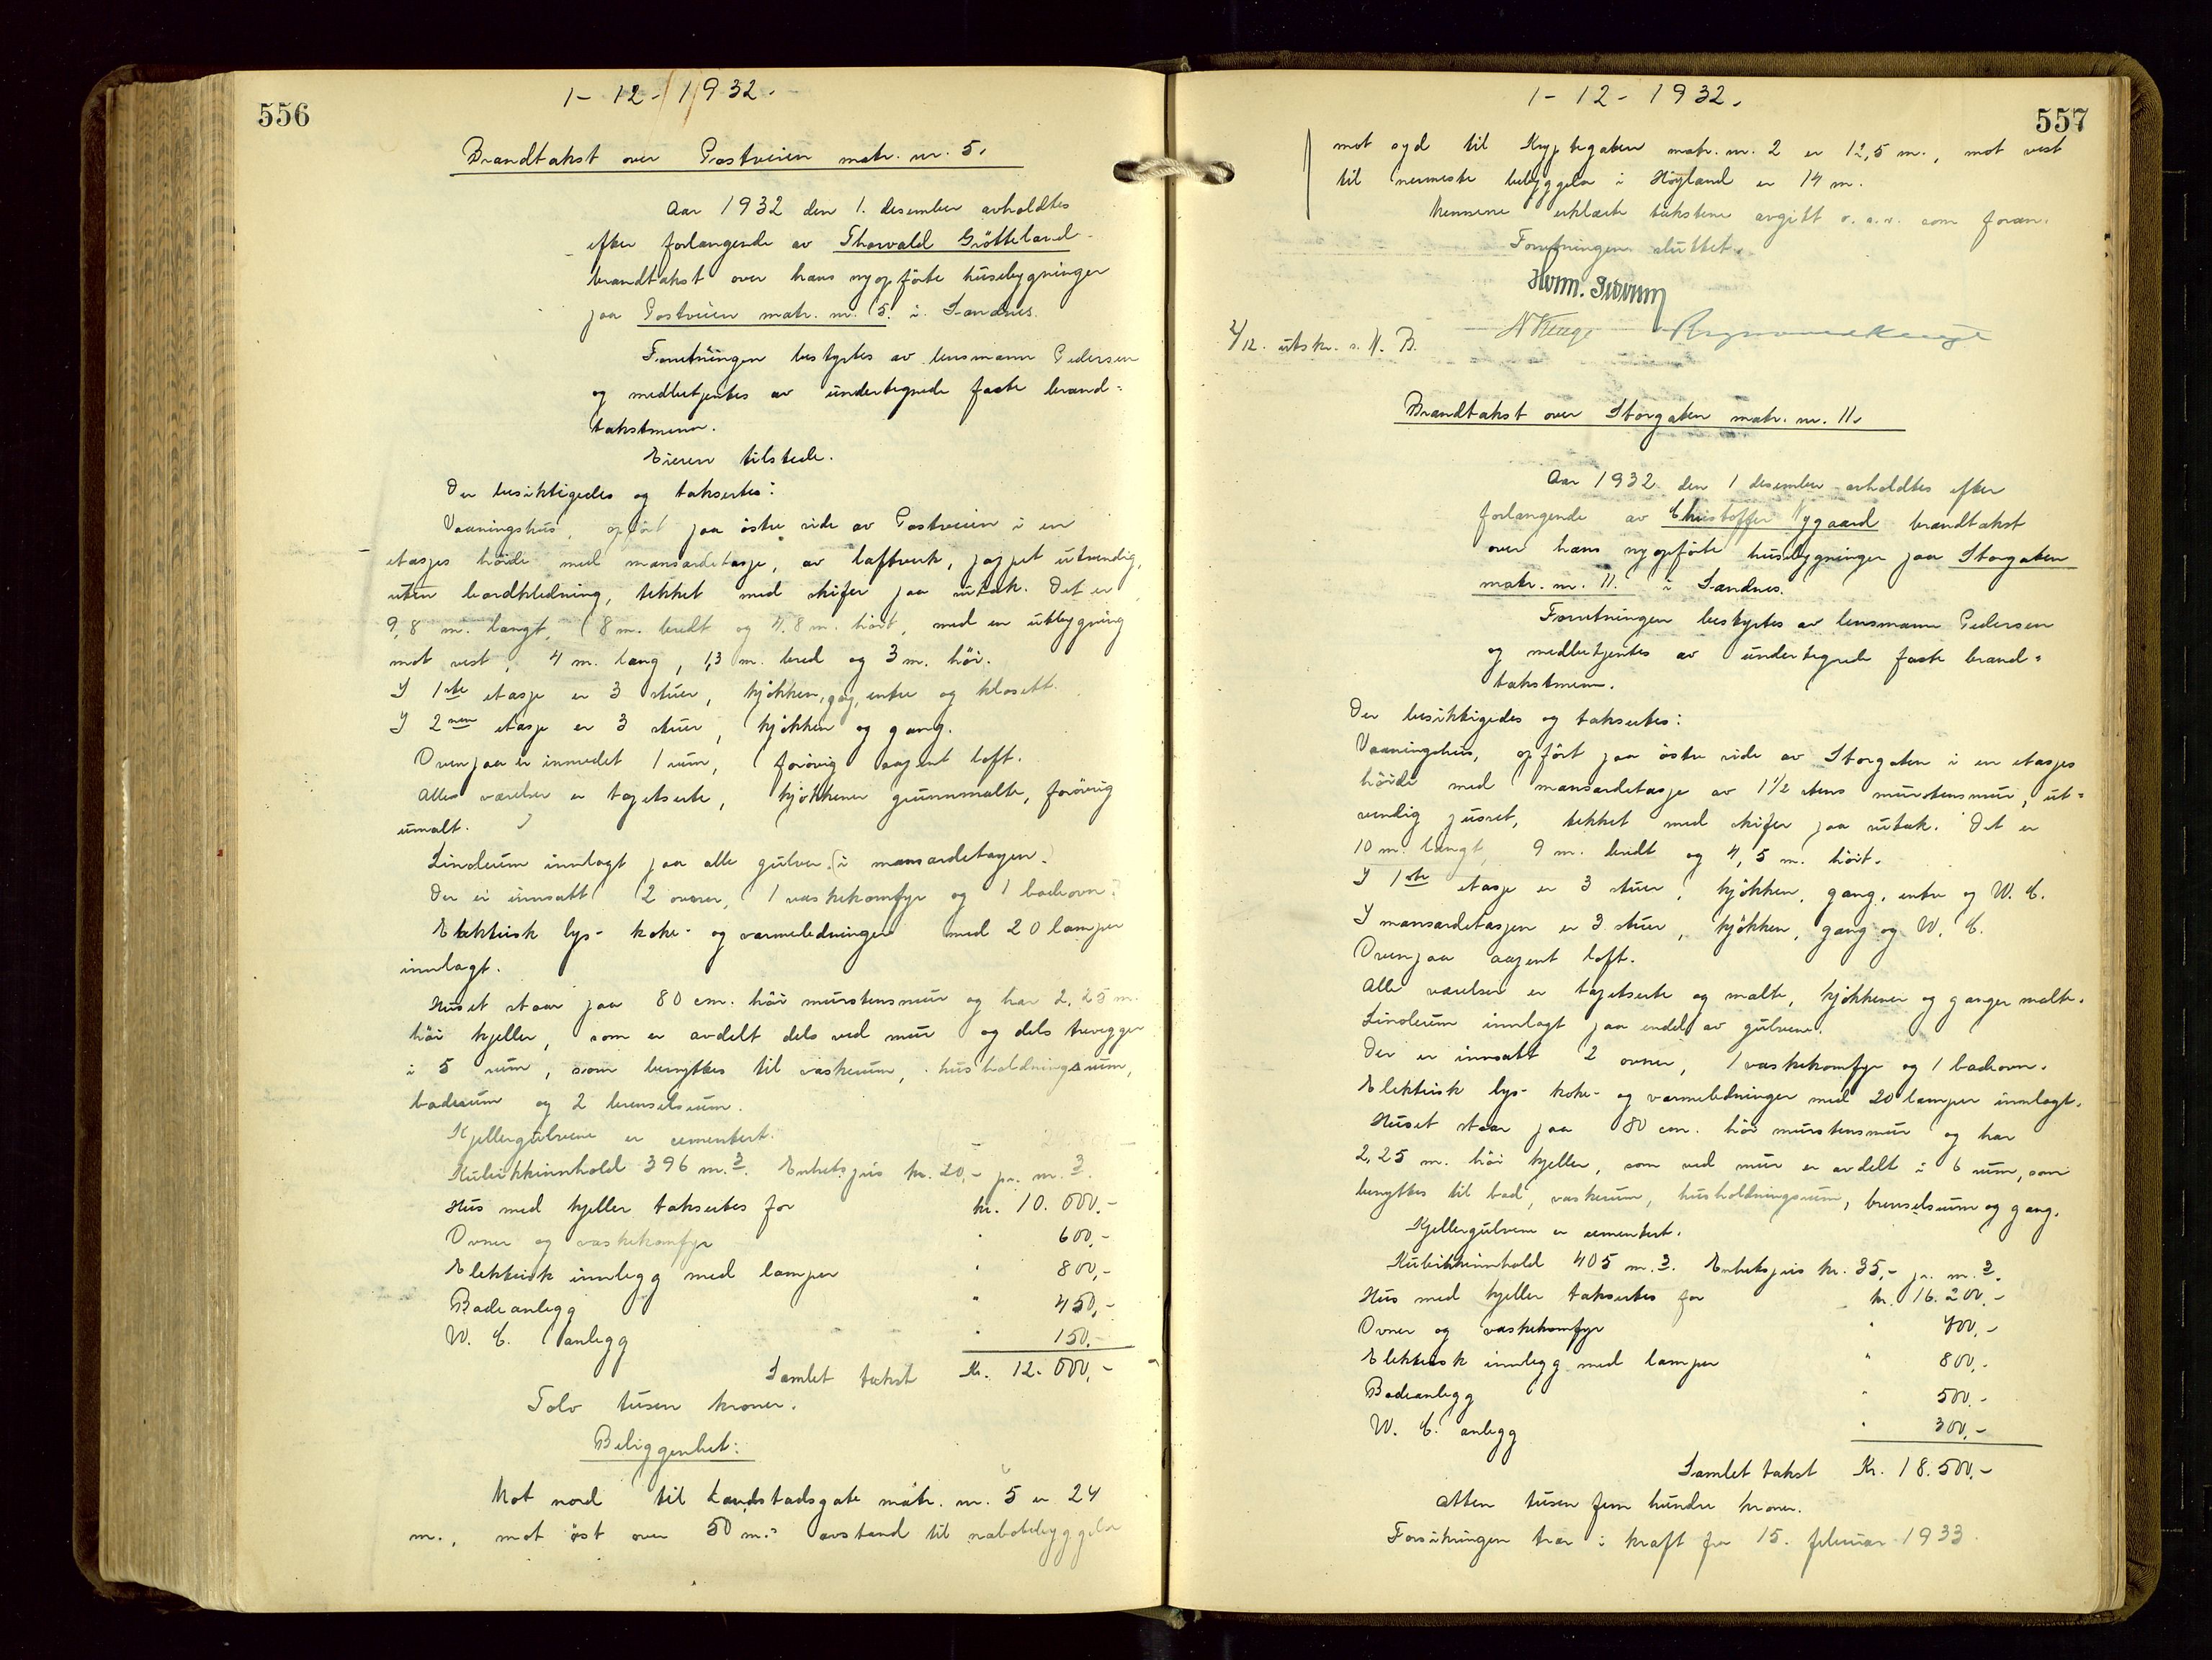 556
1-12-1932.
Brandtakst over Postveien matr. nr. 5.
Aar 1932 den 1. desember avholdtes
efter forlangende av Thorvald Grötteland
brandtakst over hans nyopförte husebygninger
paa Postveien matr. nr. 5. i Sandnes.
Forretningen bestyrtes av lensmann Pedersen
og medbetjentes av undertegnede faste brand-
takstmenn.
Eieren tilstede.
Der besiktigedes og taksertes:
Vaaningshus, opfört paa östre side av Postveien i en
etasjes höide med mansardetasje, av laftverk, pappet utvendig,
uten bordkledning, tekket med skifer paa sutak. Det er
9,8 m. langt, 8 m. bredt og 4,8 m. höit, med en utbygning
mot vest, 4 m. lang, 1,3 m. bred og 3 m. höi.
I 1ste etasje er 3 stuer, kjökken, gang, entre og klosett.
I 2nen etasje er 3 stuer, kjökken og gang.
Ovenpaa er innredet 1 rum, forövrig aapent loft.
Alle værelser er tapetserte, kjökkener grunnmalte, forövrig
umalt.
Linoleum innlagt paa alle gulver i mansardetasjen.
Der er innsatt 2 ovner, 1 vaskekomfyr og 1 badeovn.
Elektrisk lys- koke- og varmeledninger med 20 lamper
innlagt.
Huset staar paa 80 cm. höi murstensmur og har 2,25 m.
höi kjeller, som er avdelt dels ved mur og dels trevegger
i 5 rum, som benyttes til vaskerum, husholdningsrum,
baderum og 2 brenselsrum.
Kjellergulvene er cementert.
Kubikkinnhold 396 m.3. Enhetspris kr. 20,- pr. m.3.
Hus med kjeller taksertes for kr. 10.000,-
Ovner og vaskekomfyr " 600,-
Elektrisk innlegg med lamper " 800,-
Badeanlegg " 450,-
W. C. anlegg " 150,-
Samlet takst Kr. 12.000,-
Tolv tusen kroner.
Beliggenhet:
Mot nord til Landstadsgate matr. nr. 5 er 24
m., mot öst over 50 m.s avstand til nabobebyggelse
557
1-12-1932.
mot syd til matr. nr. 2 er 12,5 m., mot vest
til nermeste bebyggelse i Höyland er 14 m.
Mennene erklærte takstene avgitt o. s. v. som foran.
Forretningen sluttet.
2/12. utskr. s. N. B.
Brandtakst over Storgaten matr. nr. 11.
Aar 1932 den 1 desember avholdtes efter
forlangende av Christoffer Nygaard brandtakst
over hans nyopförte husebygninger paa Storgaten
matr. nr. 11. i Sandnes.
Forretningen bestyrtes av lensmann Pedersen
og medbetjentes av undertegnede faste brand-
takstmenn.
Der besiktigedes og taksertes:
Vaaningshus, opfört paa östre side av Storgaten i en etasjes
höide med mansardetasje av 1 1/2 stens murstensmur, ut-
vendig pusset, tekket med skifer paa sutak. Det er
10 m. langt, 9 m. bredt og 4,5 m. höit.
I 1ste etasje er 3 stuer, kjökken, gang, entre og W. C.
I mansardetasjen er 3 stuer, kjökken, gang og W. C.
Ovenpaa aapent loft.
Alle værelser er tapetserte og malte, kjökkener og ganger malte.
Linoleum innlagt paa endel av gulvene.
Der er innsatt 2 ovner, 1 vaskekomfyr og 1 badeovn.
Elektrisk lys- koke- og varmeledninger med 20 lamper innlagt.
Huset staar paa 80 cm. höi murstensmur og har
2,25 m. höi kjeller, som ved mur er avdelt i 6 rum, som
benyttes til bad, vaskerum, husholdningsrum, brenselsrum og gang.
Kjellergulvene er cementert.
Kubikkinnhold 405 m.3. Enhetspris kr. 35,- pr. m.3.
Hus med kjeller taksertes for kr. 16.200,-
Ovner og vaskekomfyr " 700,-
Elektrisk innlegg med lamper " 800,-
Badeanlegg " 500,-
W. C. anlegg " 300,-
Samlet takst Kr. 18.500,-
Atten tusen fem hundre kroner.
Forsikringen trær i kraft fra 15. februar 1933.